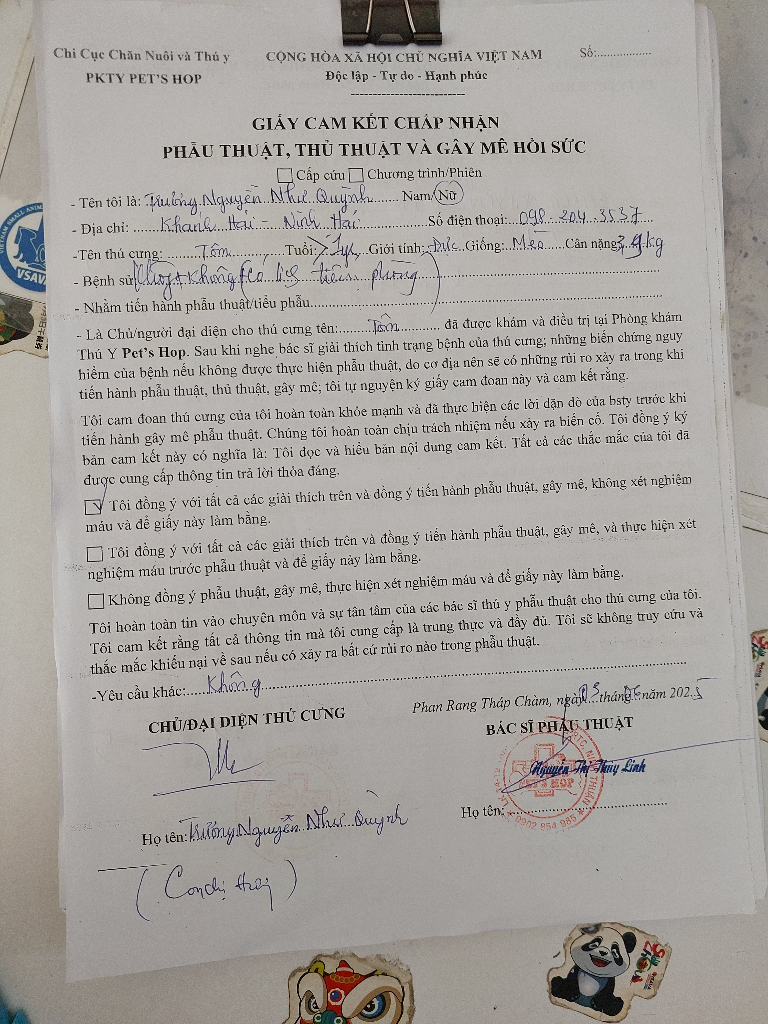 Chi Cục Chăn Nuôi và Thú y
PKTY PET'S HOP
CỘNG HÒA XÃ HỘI CHỦ NGHĨA VIỆT NAM
Độc lập - Tự do - Hạnh phúc
Số:.................
GIẤY CAM KẾT CHẤP NHẬN
PHẪU THUẬT, THỦ THUẬT VÀ GÂY MÊ HỒI SỨC
Cấp cứu Chương trình/Phiên
- Tên tôi là: Trương Nguyễn Như Quỳnh Nam/Nữ
- Địa chỉ: Khánh Hải - Ninh Hải Số điện thoại: 098 204 3537
-Tên thú cưng: Tôm Tuổi: Giới tính: Đực Giống: Mèo Cân nặng 3,9kg
- Bệnh sử: không (có lịch tiêm phòng)
- Nhằm tiến hành phẫu thuật/tiểu phẫu.................
- Là Chủ/người đại diện cho thú cưng tên: Tôm đã được khám và điều trị tại Phòng khám
Thú Y Pet's Hop. Sau khi nghe bác sĩ giải thích tình trạng bệnh của thú cưng; những biến chứng nguy
hiểm của bệnh nếu không được thực hiện phẫu thuật, do cơ địa nên sẽ có những rủi ro xảy ra trong khi
tiến hành phẫu thuật, thủ thuật, gây mê; tôi tự nguyện ký giấy cam đoan này và cam kết rằng.
Tôi cam đoan thú cưng của tôi hoàn toàn khỏe mạnh và đã thực hiện các lời dặn dò của bsty trước khi
tiến hành gây mê phẫu thuật. Chúng tôi hoàn toàn chịu trách nhiệm nếu xảy ra biến cố. Tôi đồng ý ký
bản cam kết này có nghĩa là: Tôi đọc và hiểu bản nội dung cam kết. Tất cả các thắc mắc của tôi đã
được cung cấp thông tin trả lời thỏa đáng.
Tôi đồng ý với tất cả các giải thích trên và đồng ý tiến hành phẫu thuật, gây mê, không xét nghiệm
máu và để giấy này làm bằng.
Tôi đồng ý với tất cả các giải thích trên và đồng ý tiến hành phẫu thuật, gây mê, và thực hiện xét
nghiệm máu trước phẫu thuật và để giấy này làm bằng.
Không đồng ý phẫu thuật, gây mê, thực hiện xét nghiệm máu và để giấy này làm bằng.
Tôi hoàn toàn tin vào chuyên môn và sự tận tâm của các bác sĩ thú y phẫu thuật cho thú cưng của tôi.
Tôi cam kết rằng tất cả thông tin mà tôi cung cấp là trung thực và đầy đủ. Tôi sẽ không truy cứu và
thắc mắc khiếu nại về sau nếu có xảy ra bất cứ rủi ro nào trong phẫu thuật.
-Yêu cầu khác: Không
Phan Rang Tháp Chàm, ngày 03 tháng 06 năm 2025
CHỦ/ĐẠI DIỆN THÚ CƯNG
BÁC SĨ PHẪU THUẬT
Nguyễn Thị Thùy Linh
PET'S HOP
0902 954 985
Họ tên: Trương Nguyễn Như Quỳnh
Họ tên:.................
VSAVA